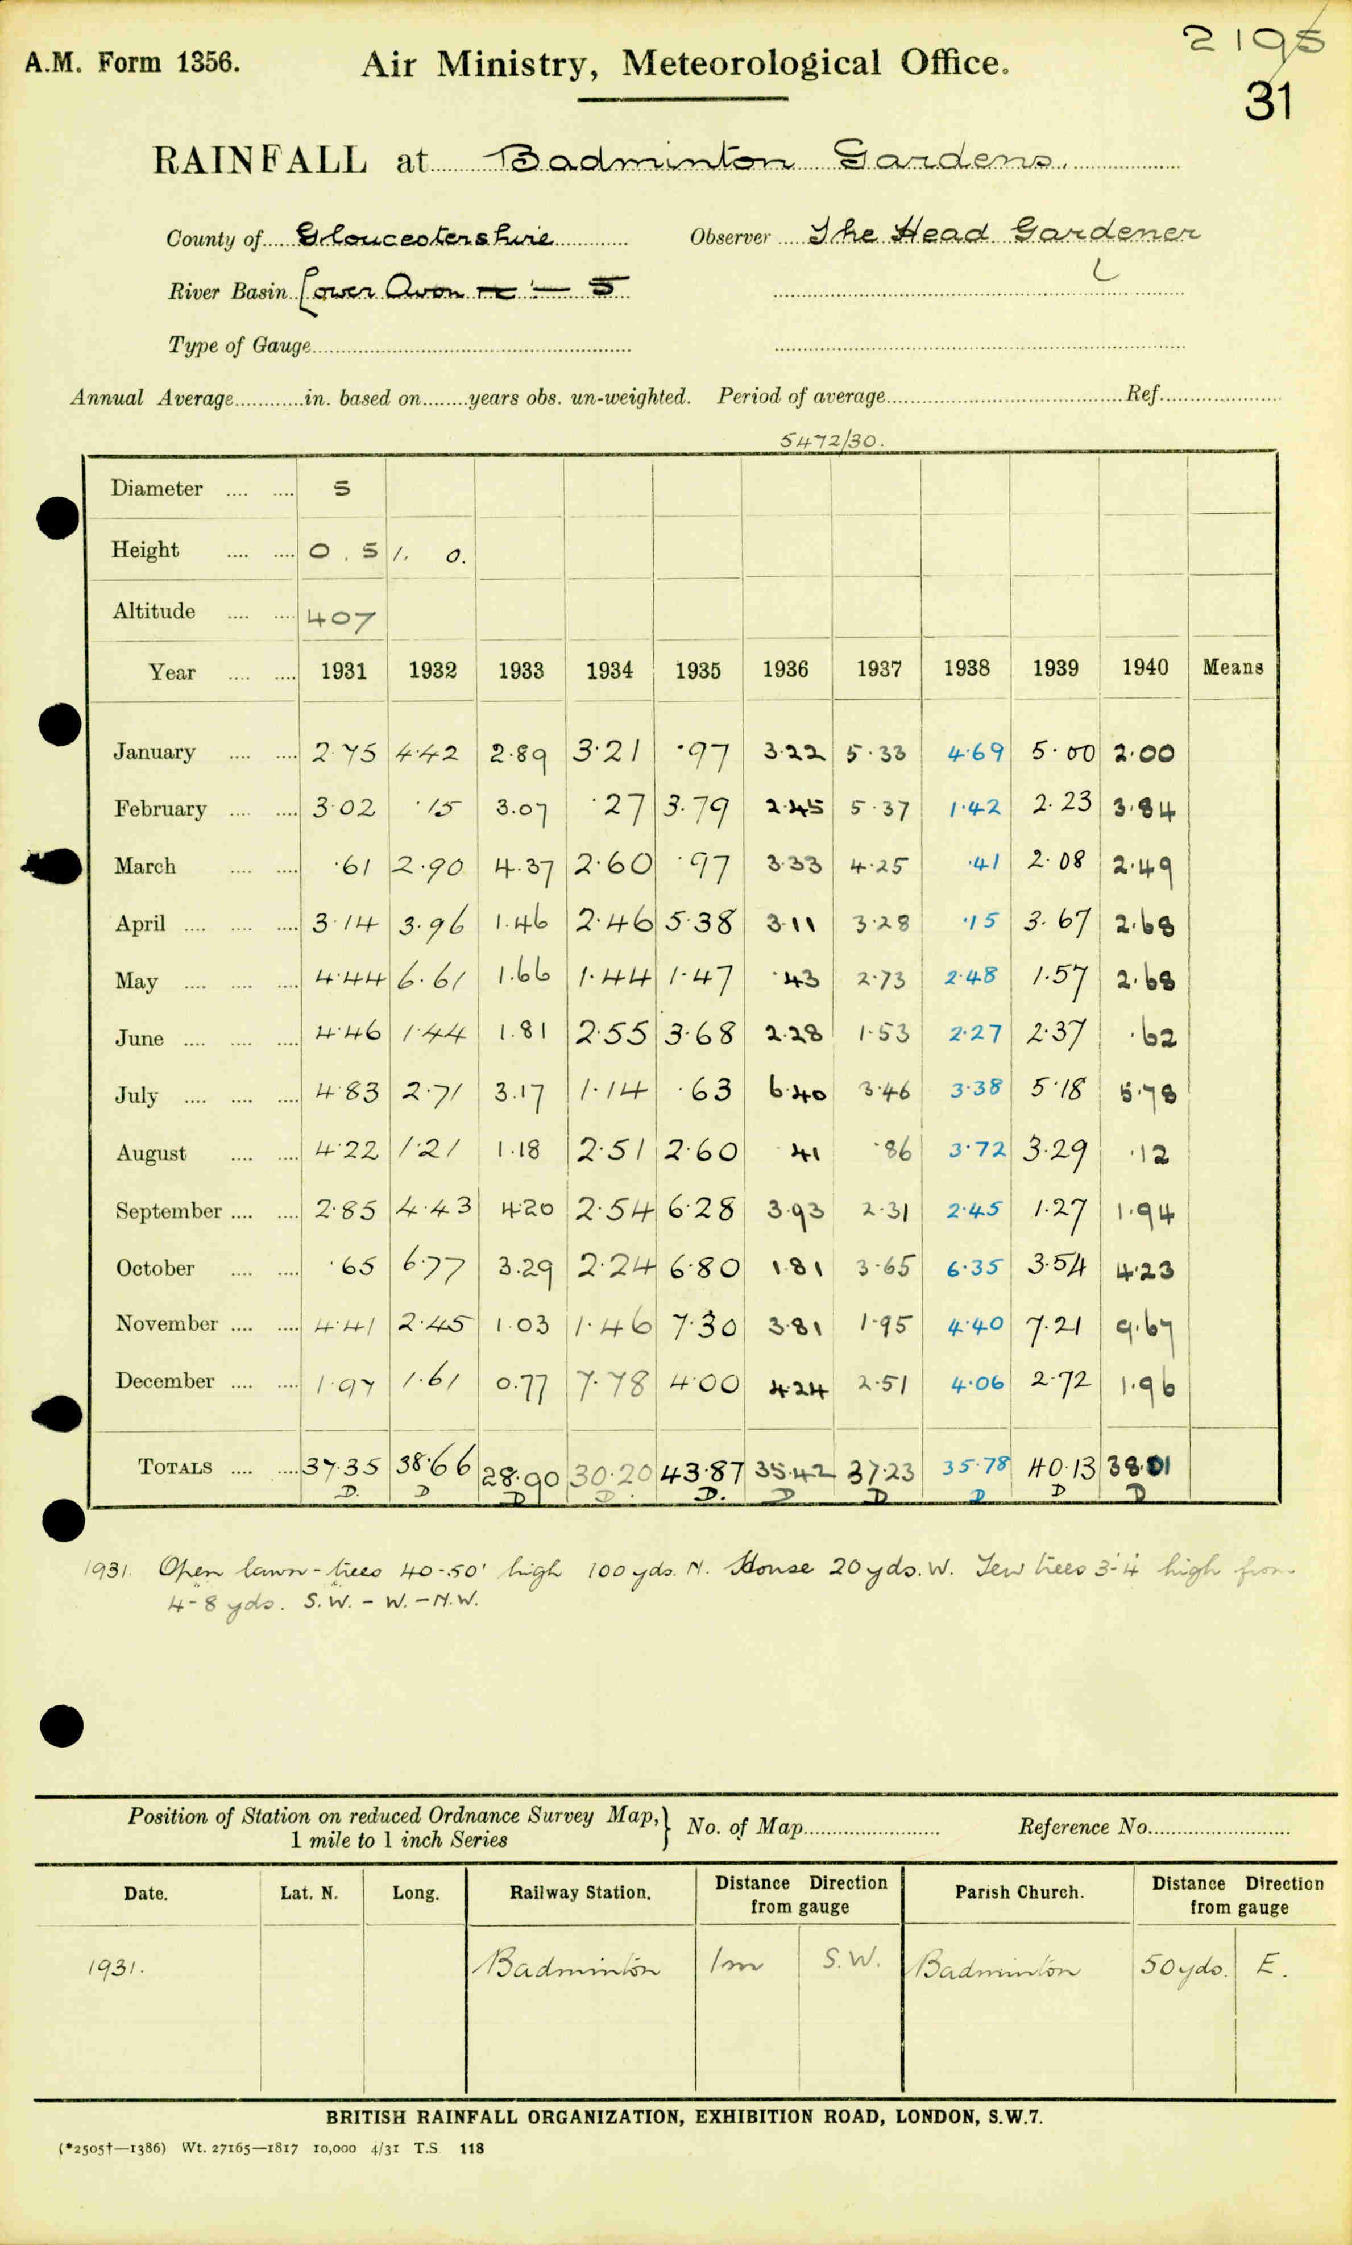 2195
A.M. Form 1356. Air Ministry, Meteorological Office.
31
RAINFALL at Badminton Gardens.
County of Gloucestershire Observer The Head Gardener
River Basin Lower Avon 5
Type of Gauge
Annual Average in. based on years obs. un-weighted. Period of average Ref.
5472/30.
Diameter 5
Height 0 . 5 1. 0.
Altitude 407
Year 1931 1932 1933 1934 1935 1936 1937 1938 1939 1940 Means
January 2.75 4.42 2.89 3.21 .97 3.22 5.33 4.69 5.00 2.00
February 3.02 .15 3.07 .27 3.79 2.45 5.37 1.42 2.23 3.84
March .61 2.90 4.37 2.60 .97 3.33 4.25 .41 2.08 2.49
April 3.14 3.96 1.46 2.46 5.38 3.11 3.28 .15 3.67 2.68
May 4.44 6.61 1.66 1.44 1.47 .43 2.73 2.48 1.57 2.68
June 4.46 1.44 1.81 2.55 3.68 2.28 1.53 2.27 2.37 .62
July 4.83 2.71 3.17 1.14 .63 6.40 3.46 3.38 5.18 5.78
August 4.22 1.21 1.18 2.51 2.60 .41 .86 3.72 3.29 .12
September 2.85 4.43 4.20 2.54 6.28 3.93 2.31 2.45 1.27 1.94
October .65 6.77 3.29 2.24 6.80 1.81 3.65 6.35 3.54 4.23
November 4.41 2.45 1.03 1.46 7.30 3.81 1.95 4.40 7.21 9.67
December 1.97 1.61 0.77 7.78 4.00 4.24 2.51 4.06 2.72 1.96
TOTALS 37.35 38.66 28.90 30.20 43.87 35.42 37.23 35.78 40.13 38.01
D. D D D. D. D D D D D
1931. Open lawn - trees 40-50' high 100 yds. N. House 20 yds. W. Yew trees 3'-4' high from
4-8 yds. S.W. - W. - N.W.
Position of Station on reduced Ordnance Survey Map,} No. of Map Reference No.
1 mile to 1 inch Series
Date. Lat. N. Long. Railway Station. Distance Direction from gauge Parish Church. Distance Direction from gauge
1931. Badminton 1m S.W. Badminton 50 yds. E.
BRITISH RAINFALL ORGANIZATION, EXHIBITION ROAD, LONDON, S.W.7.
(*2505†—1386) Wt. 27165—1817 10,000 4/31 T.S. 118